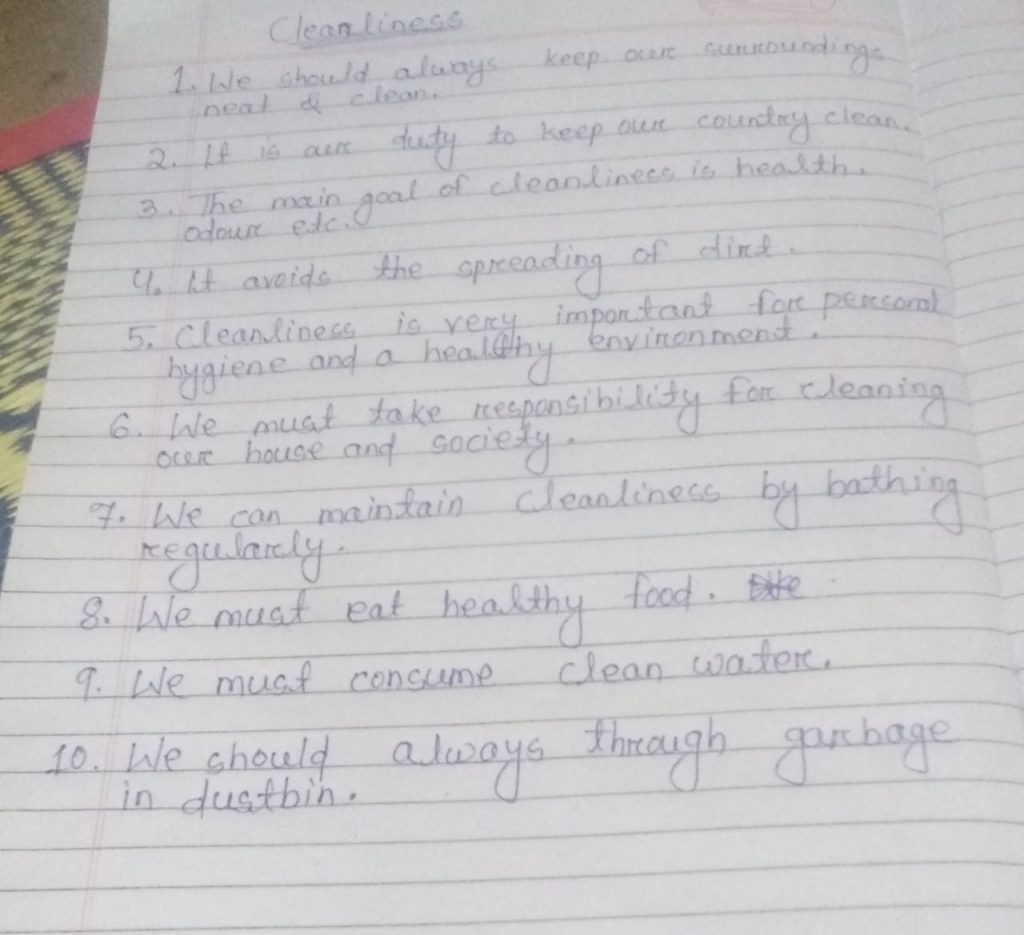 Cleanliness
1. We should always keep our surroundings
neat & clean.
2. It is our duty to keep our country clean.
3. The main goal of cleanliness is health.
odour etc.
4. It avoids the spreading of dirt.
5. Cleanliness is very important for personal
hygiene and a healthy environment.
6. We must take responsibility for cleaning
our house and society.
7. We can maintain cleanliness by bathing
regularly.
8. We must eat healthy food.
9. We must consume clean water.
10. We should always through garbage
in dustbin.